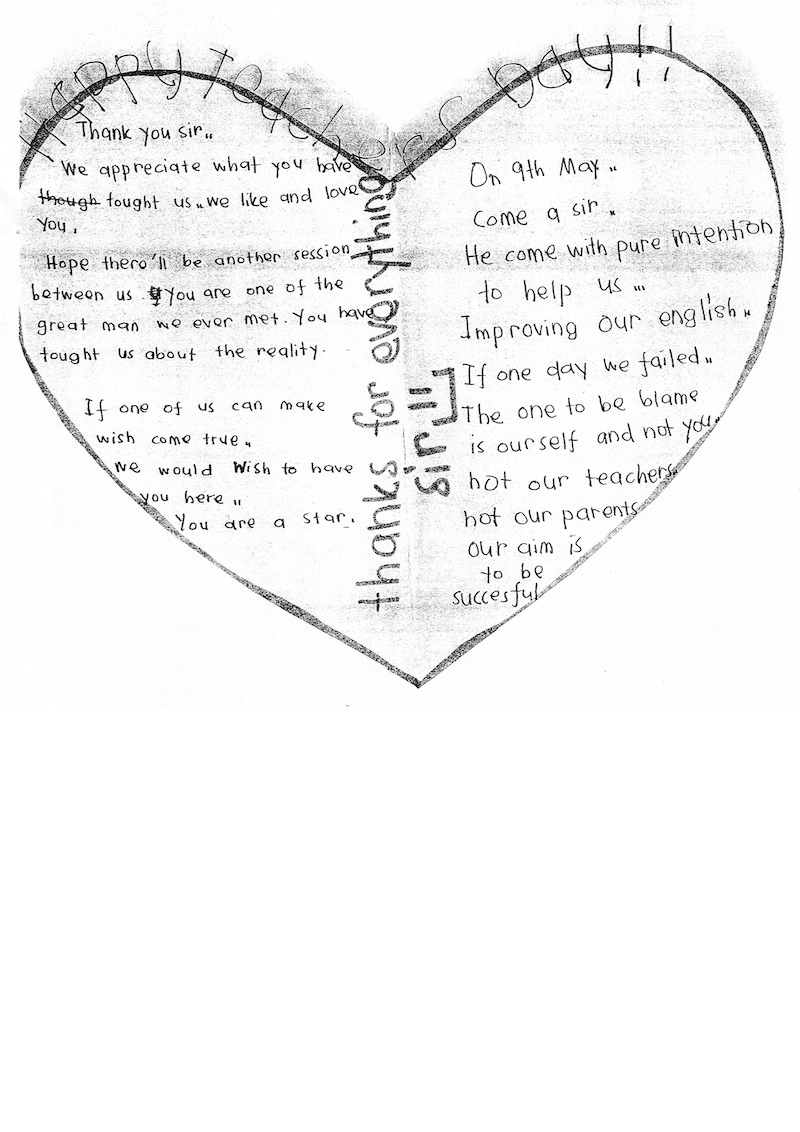 Happy Teachers Day!!
Thank you sir..
We appreciate what you have
though tought us.. we like and love
you.
Hope there'll be another session
between us. You are one of the
great man we ever met. You have
tought us about the reality.
If one of us can make
wish come true..
we would wish to have
you here..
You are a star.
thanks for everything
sir..
On 9th May..
Come a sir..
He come with pure intention
to help us ...
Improving our english..
If one day we failed..
The one to be blame
is ourself and not you.
not our teachers
not our parents
our aim is
to be
succesful